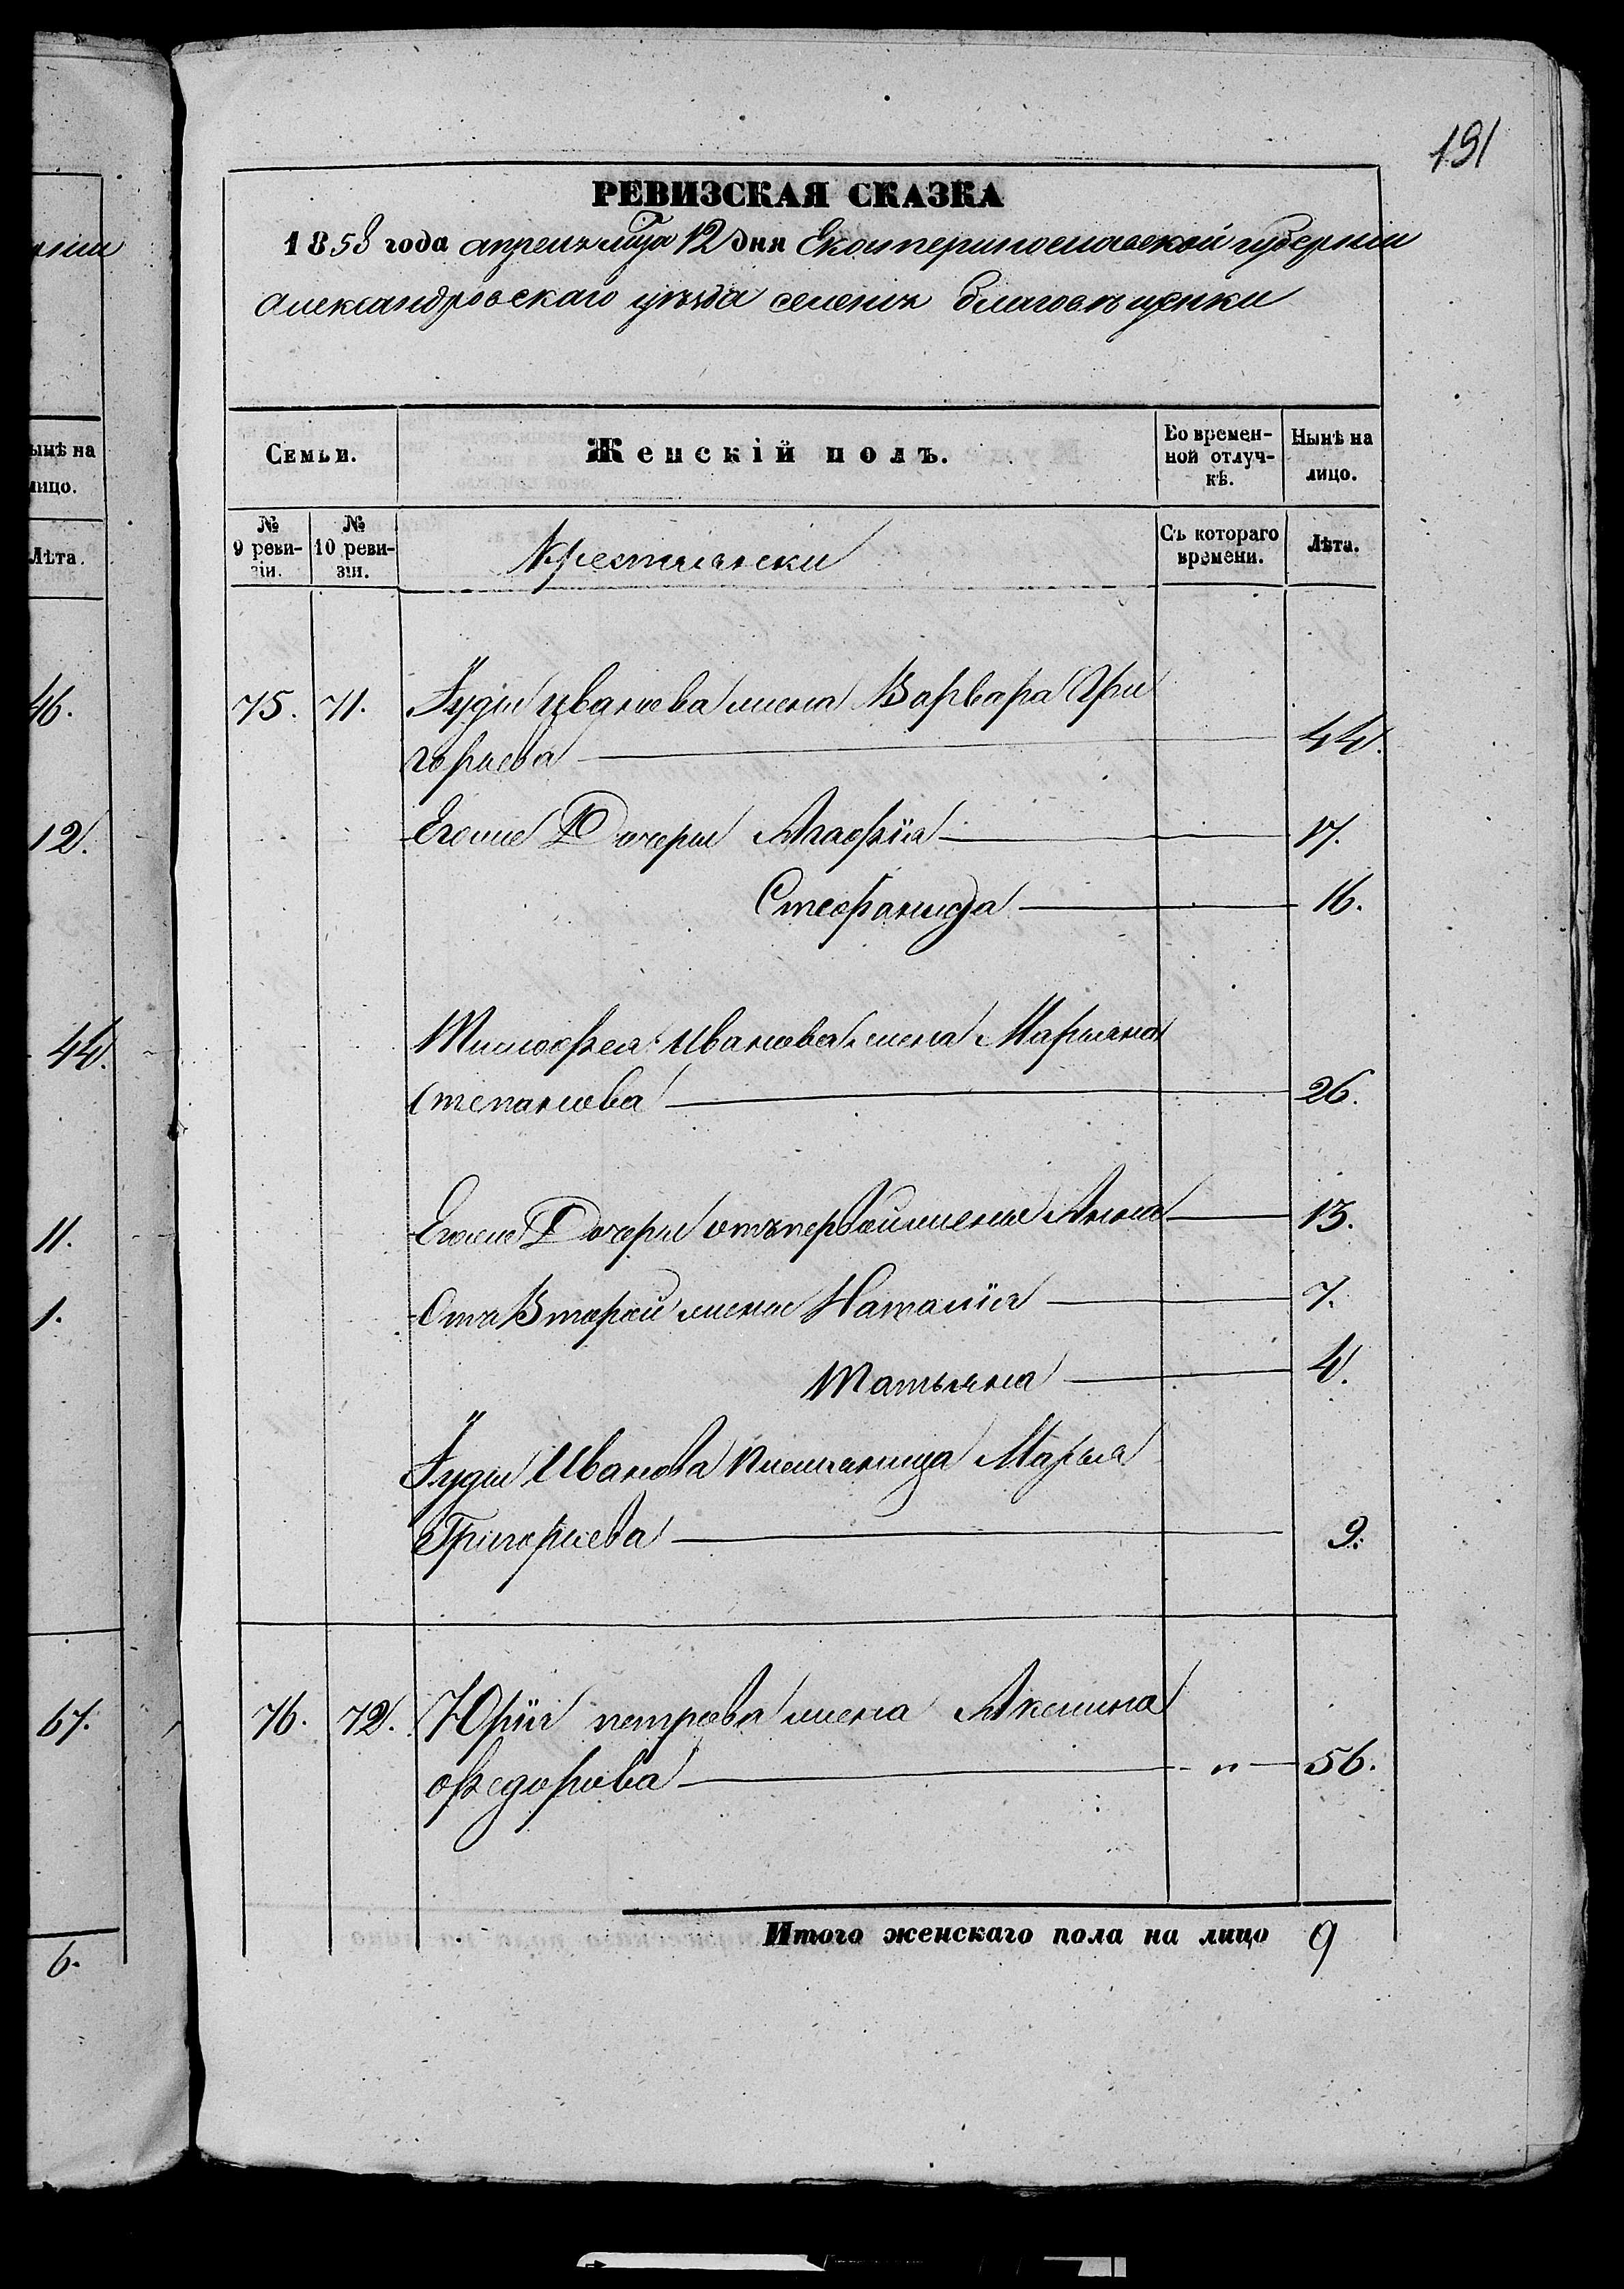 191
РЕВИЗСКАЯ СКАЗКА
1858 года апреля м̃ца 12 дня Екатеринославской губернiи
Александровскаго уѣзда селенiя благовѣщенки
Семьи.
Женскій полъ.
Во времен-
ной отлуч-
кѣ.
Нынѣ на
лицо.
№
9 реви-
зіи.
№
10 реви-
зіи.
Крестьянски
Съ котораго
времени.
Лѣта.
75. 71. Іуды Иванова жена Варвара Гри
горьева 44.
Егоже Дочери Агафія 17.
Стефанида 16.
Тимофея Иванова жена Марьяна
Степанова 26.
Егоже Дочери отъ первой жены Анна 13.
Отъ Второй жены Наталія 7.
Татьяна 4.
Іуды Иванова племяница Марья
Григорьева 9.
76. 72. Юрія петрова жена Акелина
Федорова " 56.
Итого женскаго пола на лицо 9
ынѣ на
лицо.
Лѣта.
46.
12.
44.
11.
1.
67.
6.